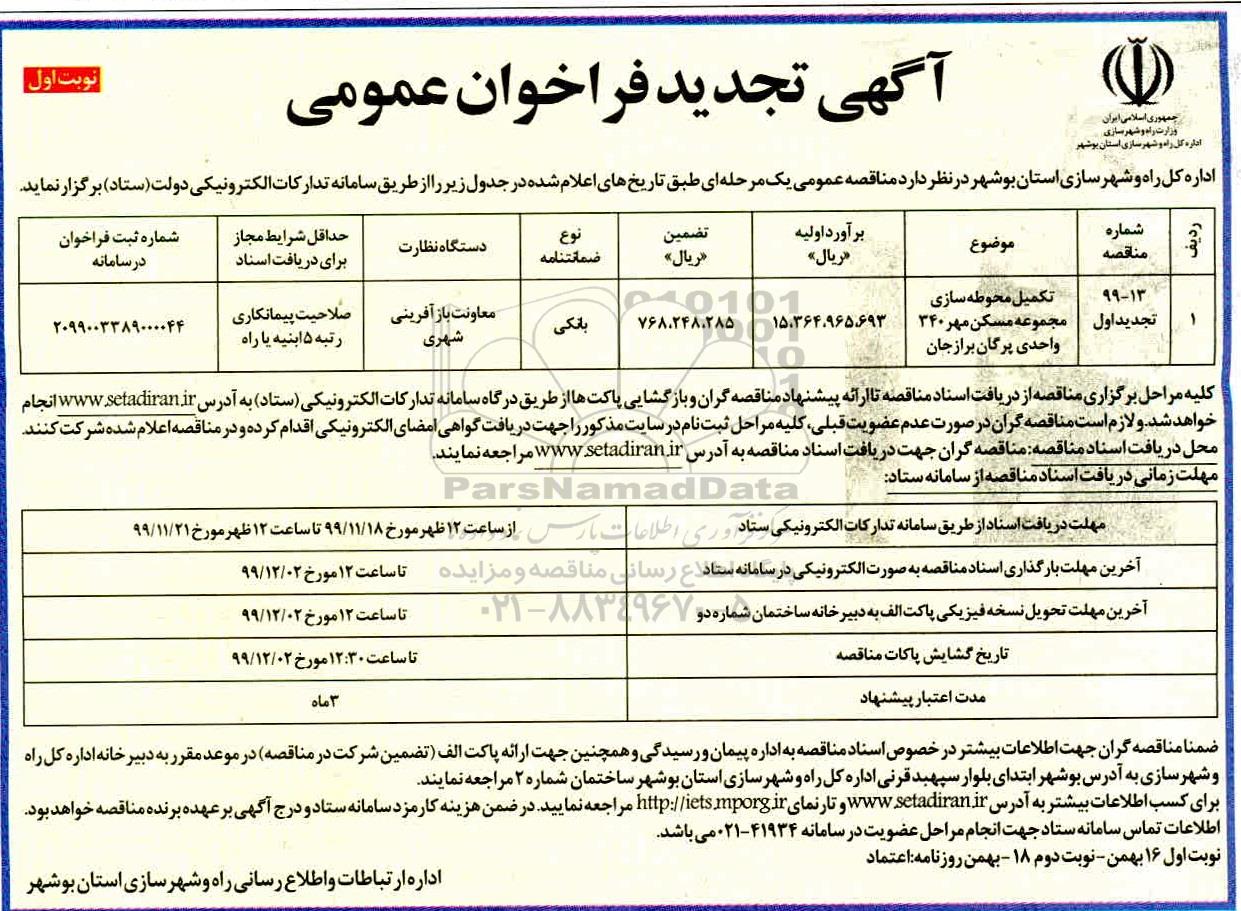 جمهوری اسلامی ایران
وزارت راه و شهرسازی
اداره کل راه و شهرسازی استان بوشهر
آگهی تجدید فراخوان عمومی
نوبت اول
اداره کل راه و شهرسازی استان بوشهر در نظر دارد مناقصه عمومی یک مرحله ای طبق تاریخ های اعلام شده در جدول زیر را از طریق سامانه تدارکات الکترونیکی دولت (ستاد) برگزار نماید.
ردیف
شماره مناقصه
موضوع
برآورد اولیه «ریال»
تضمین «ریال»
نوع ضمانتنامه
دستگاه نظارت
حداقل شرایط مجاز برای دریافت اسناد
شماره ثبت فراخوان در سامانه
۱
۹۹-۱۳ تجدید اول
تکمیل محوطه سازی مجموعه مسکن مهر ۳۴۰ واحدی پرگان برازجان
۱۵،۳۶۴،۹۶۵،۶۹۳
۷۶۸،۲۴۸،۲۸۵
بانکی
معاونت بازآفرینی شهری
صلاحیت پیمانکاری رتبه ۵ ابنیه یا راه
۲۰۹۹۰۰۳۳۸۹۰۰۰۰۴۴
کلیه مراحل برگزاری مناقصه از دریافت اسناد مناقصه تا ارائه پیشنهاد مناقصه گران و بازگشایی پاکت ها از طریق درگاه سامانه تدارکات الکترونیکی (ستاد) به آدرس www.setadiran.ir انجام
خواهد شد. و لازم است مناقصه گران در صورت عدم عضویت قبلی، کلیه مراحل ثبت نام در سایت مذکور را جهت دریافت گواهی امضای الکترونیکی اقدام کرده و در مناقصه اعلام شده شرکت کنند.
محل دریافت اسناد مناقصه: مناقصه گران جهت دریافت اسناد مناقصه به آدرس www.setadiran.ir مراجعه نمایند.
مهلت زمانی دریافت اسناد مناقصه از سامانه ستاد:
مهلت دریافت اسناد از طریق سامانه تدارکات الکترونیکی ستاد
از ساعت ۱۲ ظهر مورخ ۹۹/۱۱/۱۸ تا ساعت ۱۲ ظهر مورخ ۹۹/۱۱/۲۱
آخرین مهلت بارگذاری اسناد مناقصه به صورت الکترونیکی در سامانه ستاد
تا ساعت ۱۲ مورخ ۹۹/۱۲/۰۲
آخرین مهلت تحویل نسخه فیزیکی پاکت الف به دبیرخانه ساختمان شماره دو
تا ساعت ۱۲ مورخ ۹۹/۱۲/۰۲
تاریخ گشایش پاکات مناقصه
تا ساعت ۱۲:۳۰ مورخ ۹۹/۱۲/۰۲
مدت اعتبار پیشنهاد
۳ ماه
ParsNamadData
مرکز فرآوری اطلاعات پارس نماد داده ها
پایگاه اطلاع رسانی مناقصه و مزایده
۰۲۱-۸۸۳۴۹۶۷۰-۵
ضمنا مناقصه گران جهت اطلاعات بیشتر در خصوص اسناد مناقصه به اداره پیمان و رسیدگی و همچنین جهت ارائه پاکت الف (تضمین شرکت در مناقصه) در موعد مقرر به دبیرخانه اداره کل راه
و شهرسازی به آدرس بوشهر ابتدای بلوار سپهبد قرنی اداره کل راه و شهرسازی استان بوشهر ساختمان شماره ۲ مراجعه نمایند.
برای کسب اطلاعات بیشتر به آدرس www.setadiran.ir و تارنمای http://iets.mporg.ir مراجعه نمایید. در ضمن هزینه کارمزد سامانه ستاد و درج آگهی بر عهده برنده مناقصه خواهد بود.
اطلاعات تماس سامانه ستاد جهت انجام مراحل عضویت در سامانه ۴۱۹۳۴-۰۲۱ می باشد.
نوبت اول ۱۶ بهمن - نوبت دوم ۱۸ - بهمن روزنامه: اعتماد
اداره ارتباطات و اطلاع رسانی راه و شهرسازی استان بوشهر